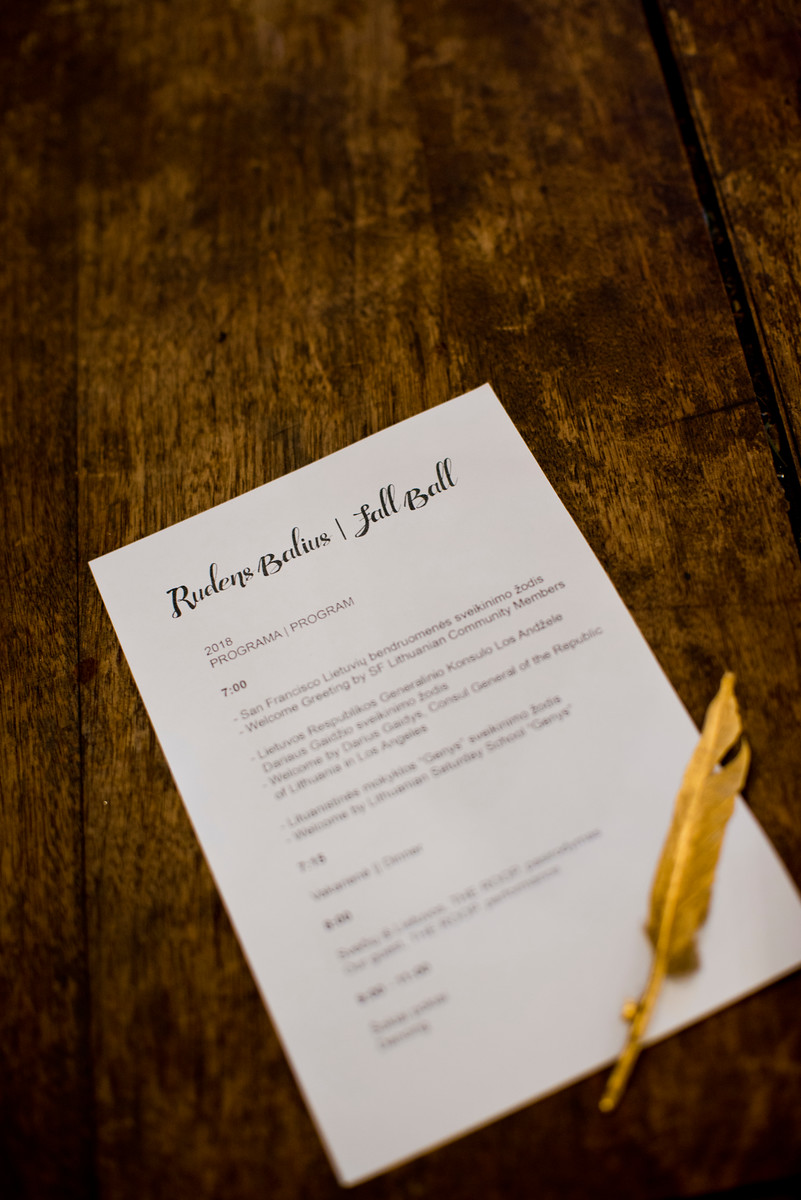 Rudens Balius | Fall Ball
2018
PROGRAMA | PROGRAM
7:00
- San Francisco Lietuvių bendruomenės sveikinimo žodis
- Welcome Greeting by SF Lithuanian Community Members
- Lietuvos Respublikos Generalinio Konsulo Los Andžele
Dariaus Gaidžio sveikinimo žodis
- Welcome by Darius Gaidys, Consul General of the Republic
of Lithuania in Los Angeles
- Lituanistinės mokyklos "Genys" sveikinimo žodis
- Welcome by Lithuanian Saturday School "Genys"
7:15
Vakarienė | Dinner
8:00
Svečių iš Lietuvos, THE ROOP, pasirodymas
Our guest, THE ROOP, performance
9:00 - 11:00
Šokiai
Dancing